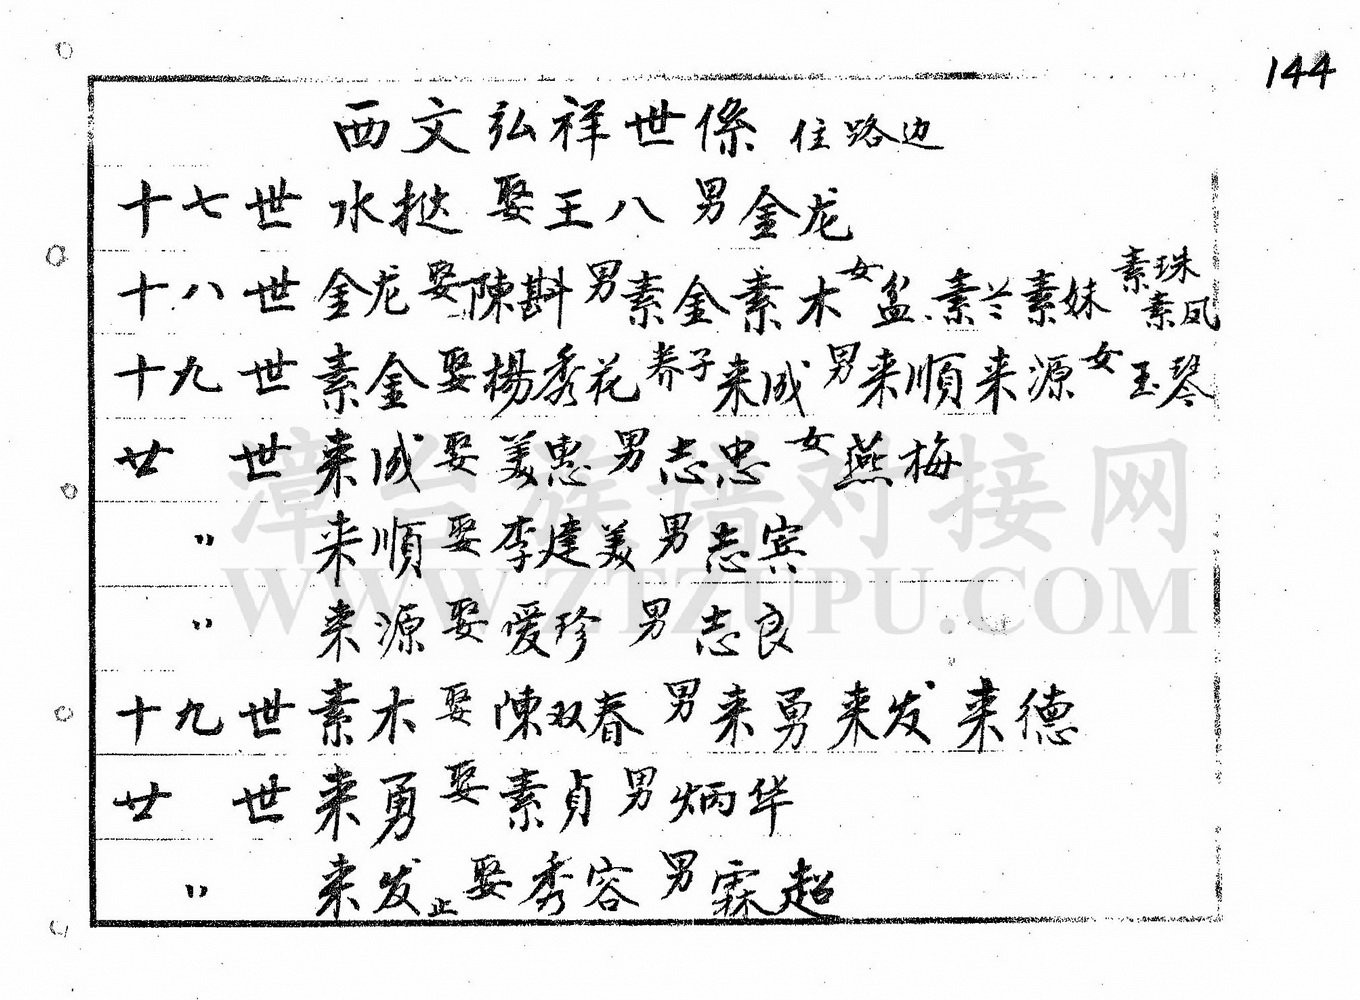 144
西文弘祥世係 住路边
十七世 水挞 娶王八 男金龙
十八世 金龙娶陳斟 男素金素木 女盆.素兰素妹 素珠素凤
十九世 素金娶楊秀花 养子来成 男来順来源 女玉琴
廿 世 来成娶美惠 男志忠 女燕梅
〃 来順娶李建美 男志宾
〃 来源娶爱珍 男志良
十九世 素木娶陳双春 男来勇来发来德
廿 世 来勇娶素貞 男炳华
〃 来发止娶秀容 男霖超
漳台族谱对接网
WWW.ZTZUPU.COM